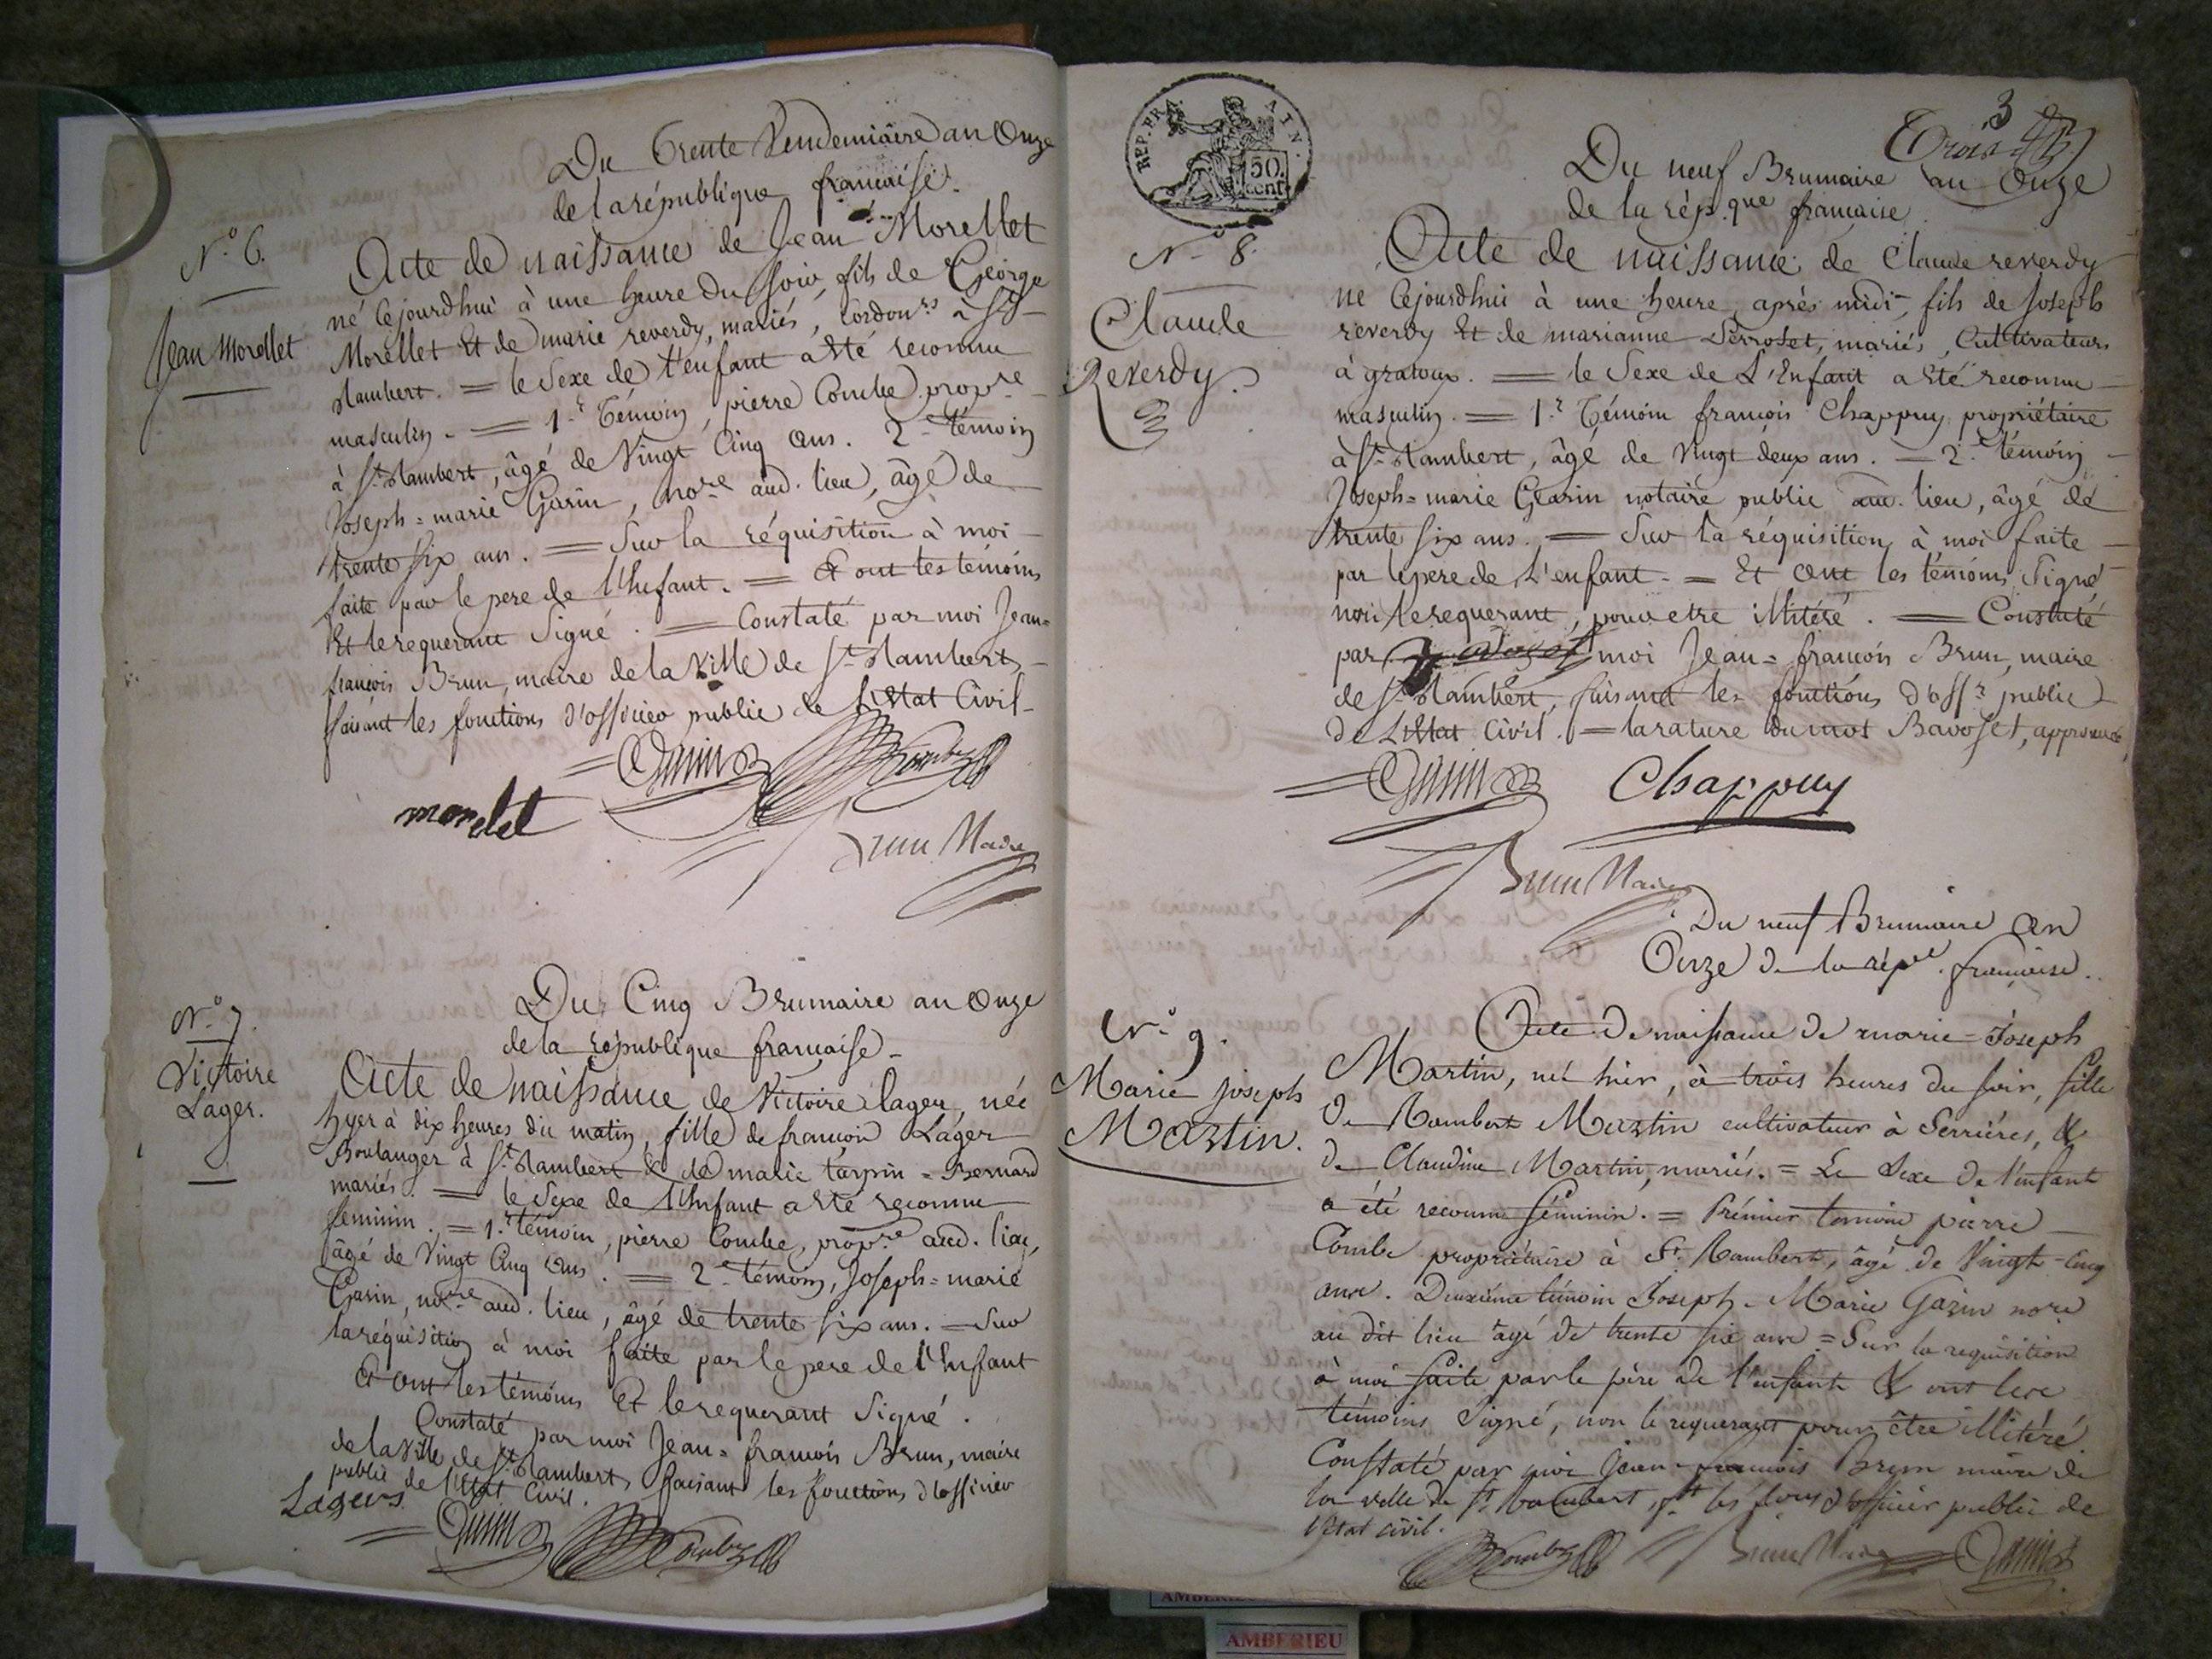 Du trente Vendemiaire an Onze
de la république française.
N.o 6.
Jean Morellet
Acte de naissance de Jean Morellet
né Cejourdhui à une heure du soir, fils de George
Morellet Et de marie reverdy, mariés, Cordon.rs à St
Rambert. = le Sexe de l'enfant a Eté reconnu
masculin. = 1.r Témoin, pierre Combe prop.re
à St Rambert, âgé de Vingt Cinq ans. 2.e témoin
Joseph = marie Garin, no.re aud. lieu, âgé de
trente six ans. = Sur la réquisition à moi
faite par le pere de l'Enfant. = Et ont les témoins
Et le requerant Signé. = Constaté par moi Jean=
françois Brun, maire de la Ville de St Rambert,
faisant les fonctions d'officier public de L'Etat Civil.
Garin Combe
morelet
Brun Maire
Du Cinq Brumaire an Onze
de la république française.
N.o 7.
Victoire
Lager.
Acte de naissance de Victoire lager, née
hyer à dix heures du matin, fille de françois Lager
Boulanger à St Rambert & de marie tarpin = Bernard
mariés. = le Sexe de l'Enfant a Eté reconnu
feminin. = 1.r témoin, pierre Combe, prop.re aud. lieu,
âgé de Vingt Cinq ans. = 2.e témoin, Joseph = marie
Garin, no.re aud. lieu, âgé de trente six ans. = Sur
la réquisition à moi faite par le pere de l'Enfant
Et ont les témoins Et le requerant Signé.
Constaté par moi Jean = françois Brun, maire
de la Ville de St Rambert, faisant les fonctions d'officier
public de l'Etat Civil.
Lagers
Garin Combe
REP. FRA
50
cent.
3
Trois
Du neuf Brumaire an Onze
de la rép.que française.
N.o 8.
Claude
Reverdy.
Acte de naissance de Claude reverdy
né Cejourdhui à une heure après midi, fils de Joseph
reverdy Et de marianne Serroset, mariés, Cultivateurs
à gratoux. = le Sexe de L'Enfant a Eté reconnu
masculin. = 1.r Témoin françois Chappuy propriétaire
à St Rambert, âgé de Vingt deux ans. = 2.e témoin
Joseph = marie Garin notaire public aud. lieu, âgé de
trente six ans. = Sur la réquisition à moi faite
par le pere de L'enfant. = Et Ont les témoins Signé
non le requerant, pour etre illitéré. = Constaté
par moi Jean = françois Brun, maire
de St Rambert, faisant les fonctions d'off.r public
de L'Etat Civil. = la rature du mot Bavoset, approuvée
Garin Chappuy
Brun Maire
Du neuf Brumaire An
Onze de la rép.ue française.
N.o 9.
Marie joseph
Martin.
Acte de naissance de marie = Joseph
Martin, né hier, à trois heures du soir, fille
de Rambert Martin cultivateur à Serrières, &
de Claudine Martin, mariés. = Le Sexe de l'enfant
a été reconnu féminin. = Prémier temoin pierre
Combe propriétaire à St Rambert, âgé de Vingt-Cinq
ans. Deuxième témoin Joseph-Marie Garin no.re
au dit lieu agé de trente six ans = Sur la requisition
à moi faite par le père de l'enfant & ont les
témoins Signé, non le requerant pour être illitéré.
Constaté par moi Jean-françois Brun maire de
la ville de St Rambert, f.t les fons d'officier public de
l'Etat civil.
Combe Brun Maire Garin
AMBERIEU